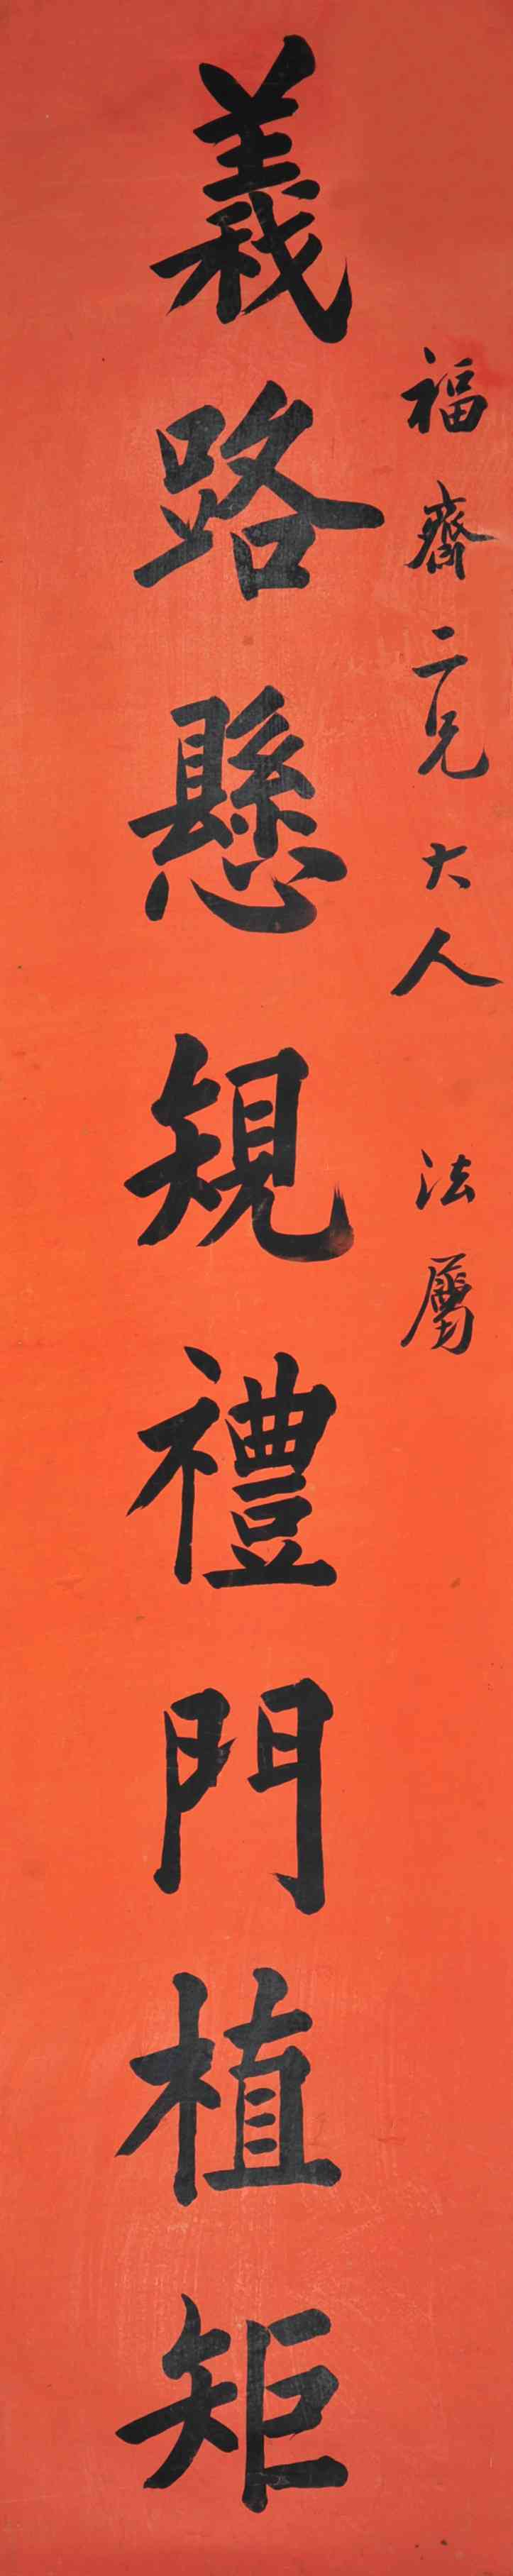 福齋二兄大人法屬
義路懸規禮門植矩